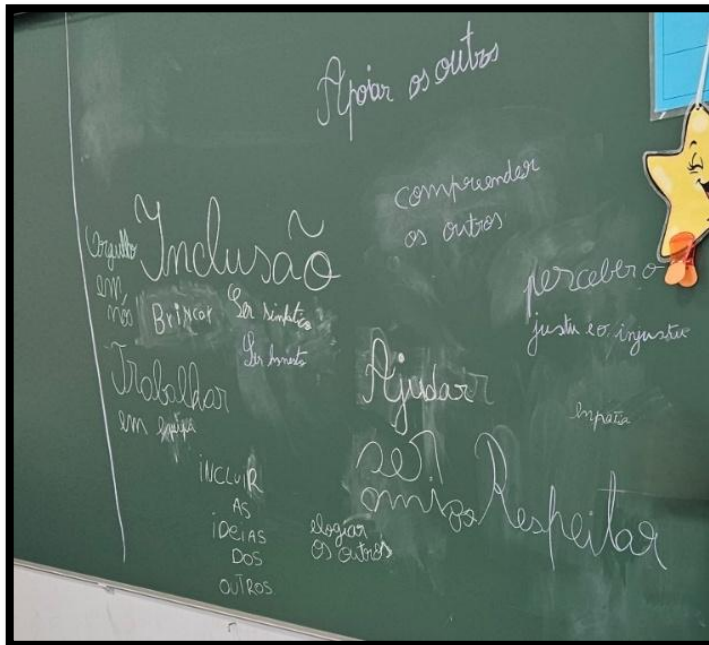 Apoiar os outros
compreender
os outros
Inclusão
orgulho
em
nós
Brincar
Ser simpático
Ser honesto
perceber o
justu e o injustu
Trabalhar
em equipa
Ajudar
Empatia
ser
amigo
Respeitar
INCLUIR
AS
IDEIAS
DOS
OUTROS
elogiar
os outros